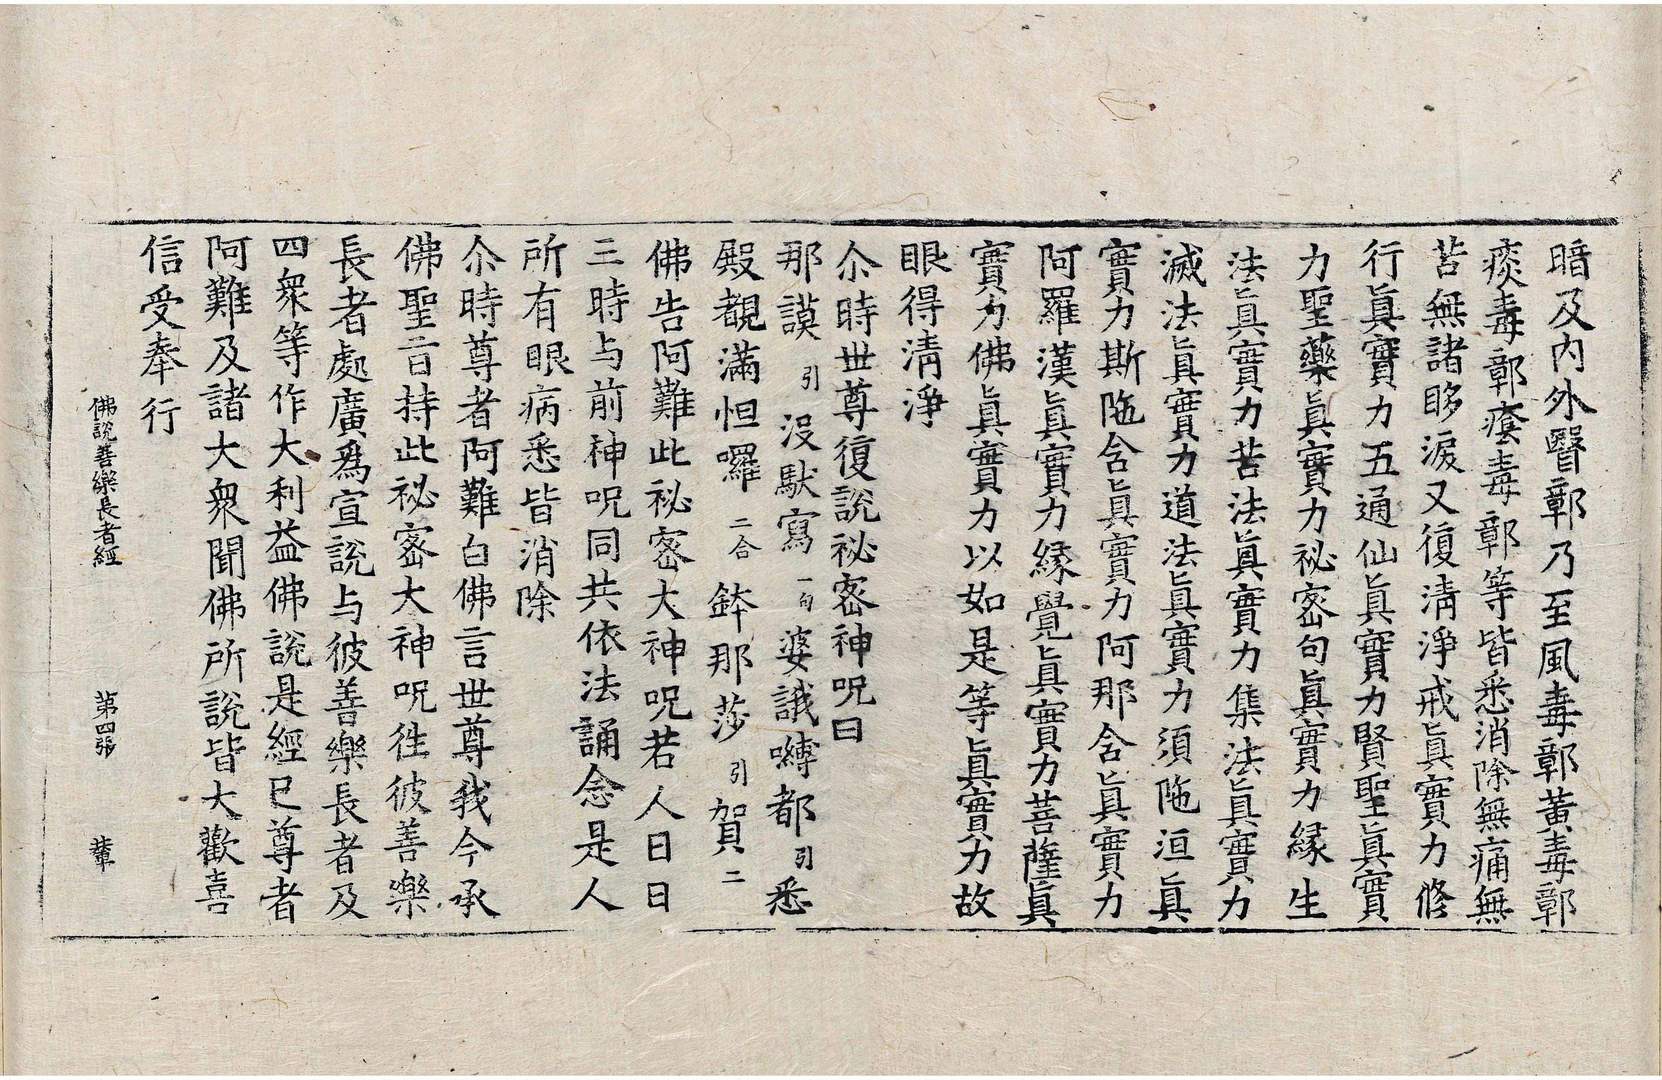 暗及内外醫鄣乃至風毒鄣黃毒鄣
痰毒鄣癊毒鄣等皆悉消除無痛無
苦無諸眵淚又復清淨戒眞實力修
行眞實力五通仙眞實力賢聖眞實
力聖藥眞實力祕密句眞實力緣生
法眞實力苦法眞實力集法眞實力
滅法眞實力道法眞實力須陁洹眞
實力斯陁含眞實力阿那含眞實力
阿羅漢眞實力緣覺眞實力菩薩眞
實力佛眞實力以如是等眞實力故
眼得清淨
尒時世尊復說祕密神呪曰
那謨引沒馱寫一句婆誐嚩都引悉
殿覩滿怛囉二合鉢那莎引賀二
佛告阿難此祕密大神呪若人日日
三時与前神呪同共依法誦念是人
所有眼病悉皆消除
尒時尊者阿難白佛言世尊我今承
佛聖旨持此祕密大神呪徃彼善樂
長者處廣爲宣說与彼善樂長者及
四衆等作大利益佛說是經已尊者
阿難及諸大衆聞佛所說皆大歡喜
信受奉行
佛說善樂長者經 第四張 輦